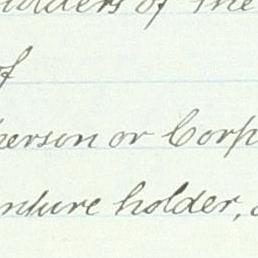 holders of the
of
person or Corp
nture holder,